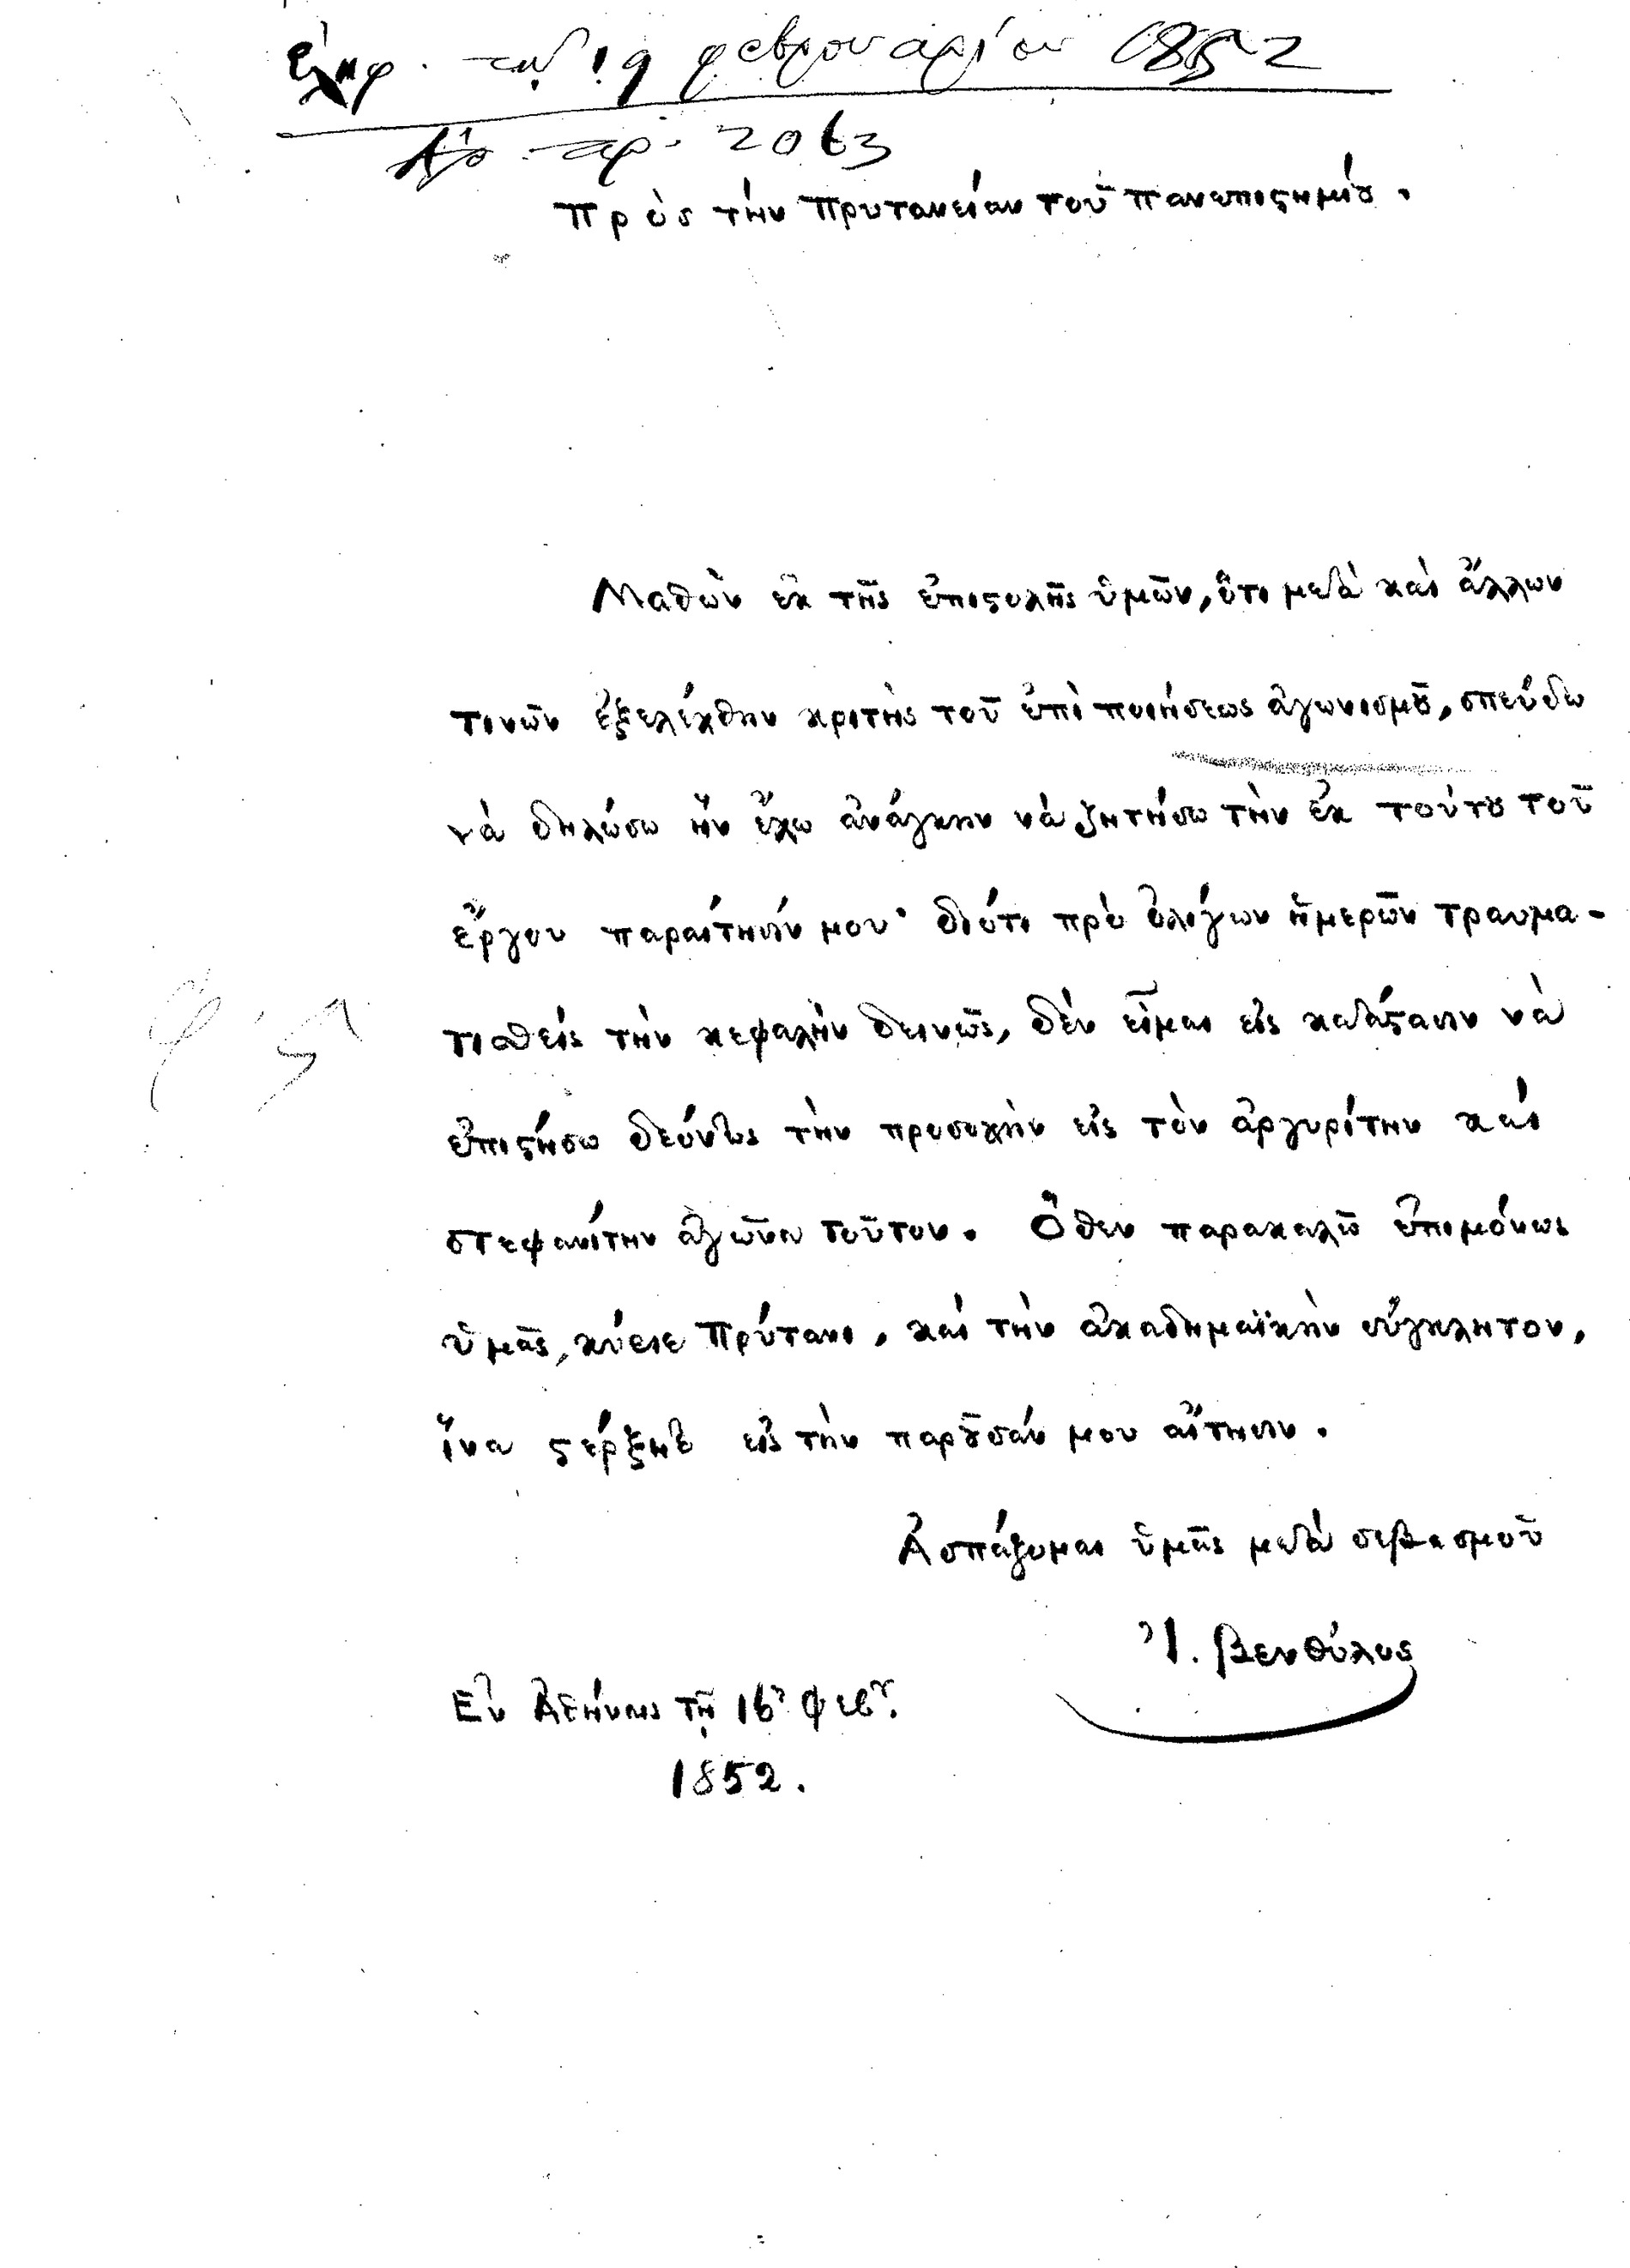 ἐλήφ. τῇ 19 φεβρουαρίου 1852
Ἀρ. πρ. 2063
Πρὸς τὴν Πρυτανείαν τοῦ Πανεπιστημίου.
Μαθὼν ἐκ τῆς ἐπιστολῆς ὑμῶν, ὅτι μετὰ καὶ ἄλλων
τινῶν ἐξελέχθην κριτὴς τοῦ ἐπὶ ποιήσεως ἀγωνισμοῦ, σπεύδω
νὰ δηλώσω ἣν ἔχω ἀνάγκην νὰ ζητήσω τὴν ἐκ τούτου τοῦ
ἔργου παραίτησίν μου· διότι πρὸ ὀλίγων ἡμερῶν τραυμα-
τισθεὶς τὴν κεφαλὴν δεινῶς, δὲν εἶμαι εἰς κατάστασιν νὰ
ἐπιστήσω δεόντως τὴν προσοχὴν εἰς τὸν ἀργυρίτην καὶ
στεφανίτην ἀγῶνα τοῦτον. Ὅθεν παρακαλῶ ἐπιμόνως
ὑμᾶς, κύριε Πρύτανι, καὶ τὴν ἀκαδημαϊκὴν σύγκλητον,
ἵνα στέρξητε εἰς τὴν παροῦσάν μου αἴτησιν.
Ἀσπάζομαι ὑμᾶς μετὰ σεβασμοῦ
Ἰ. Βενθύλος
Ἐν Ἀθήναις τῇ 16 Φεβρ.
1852.